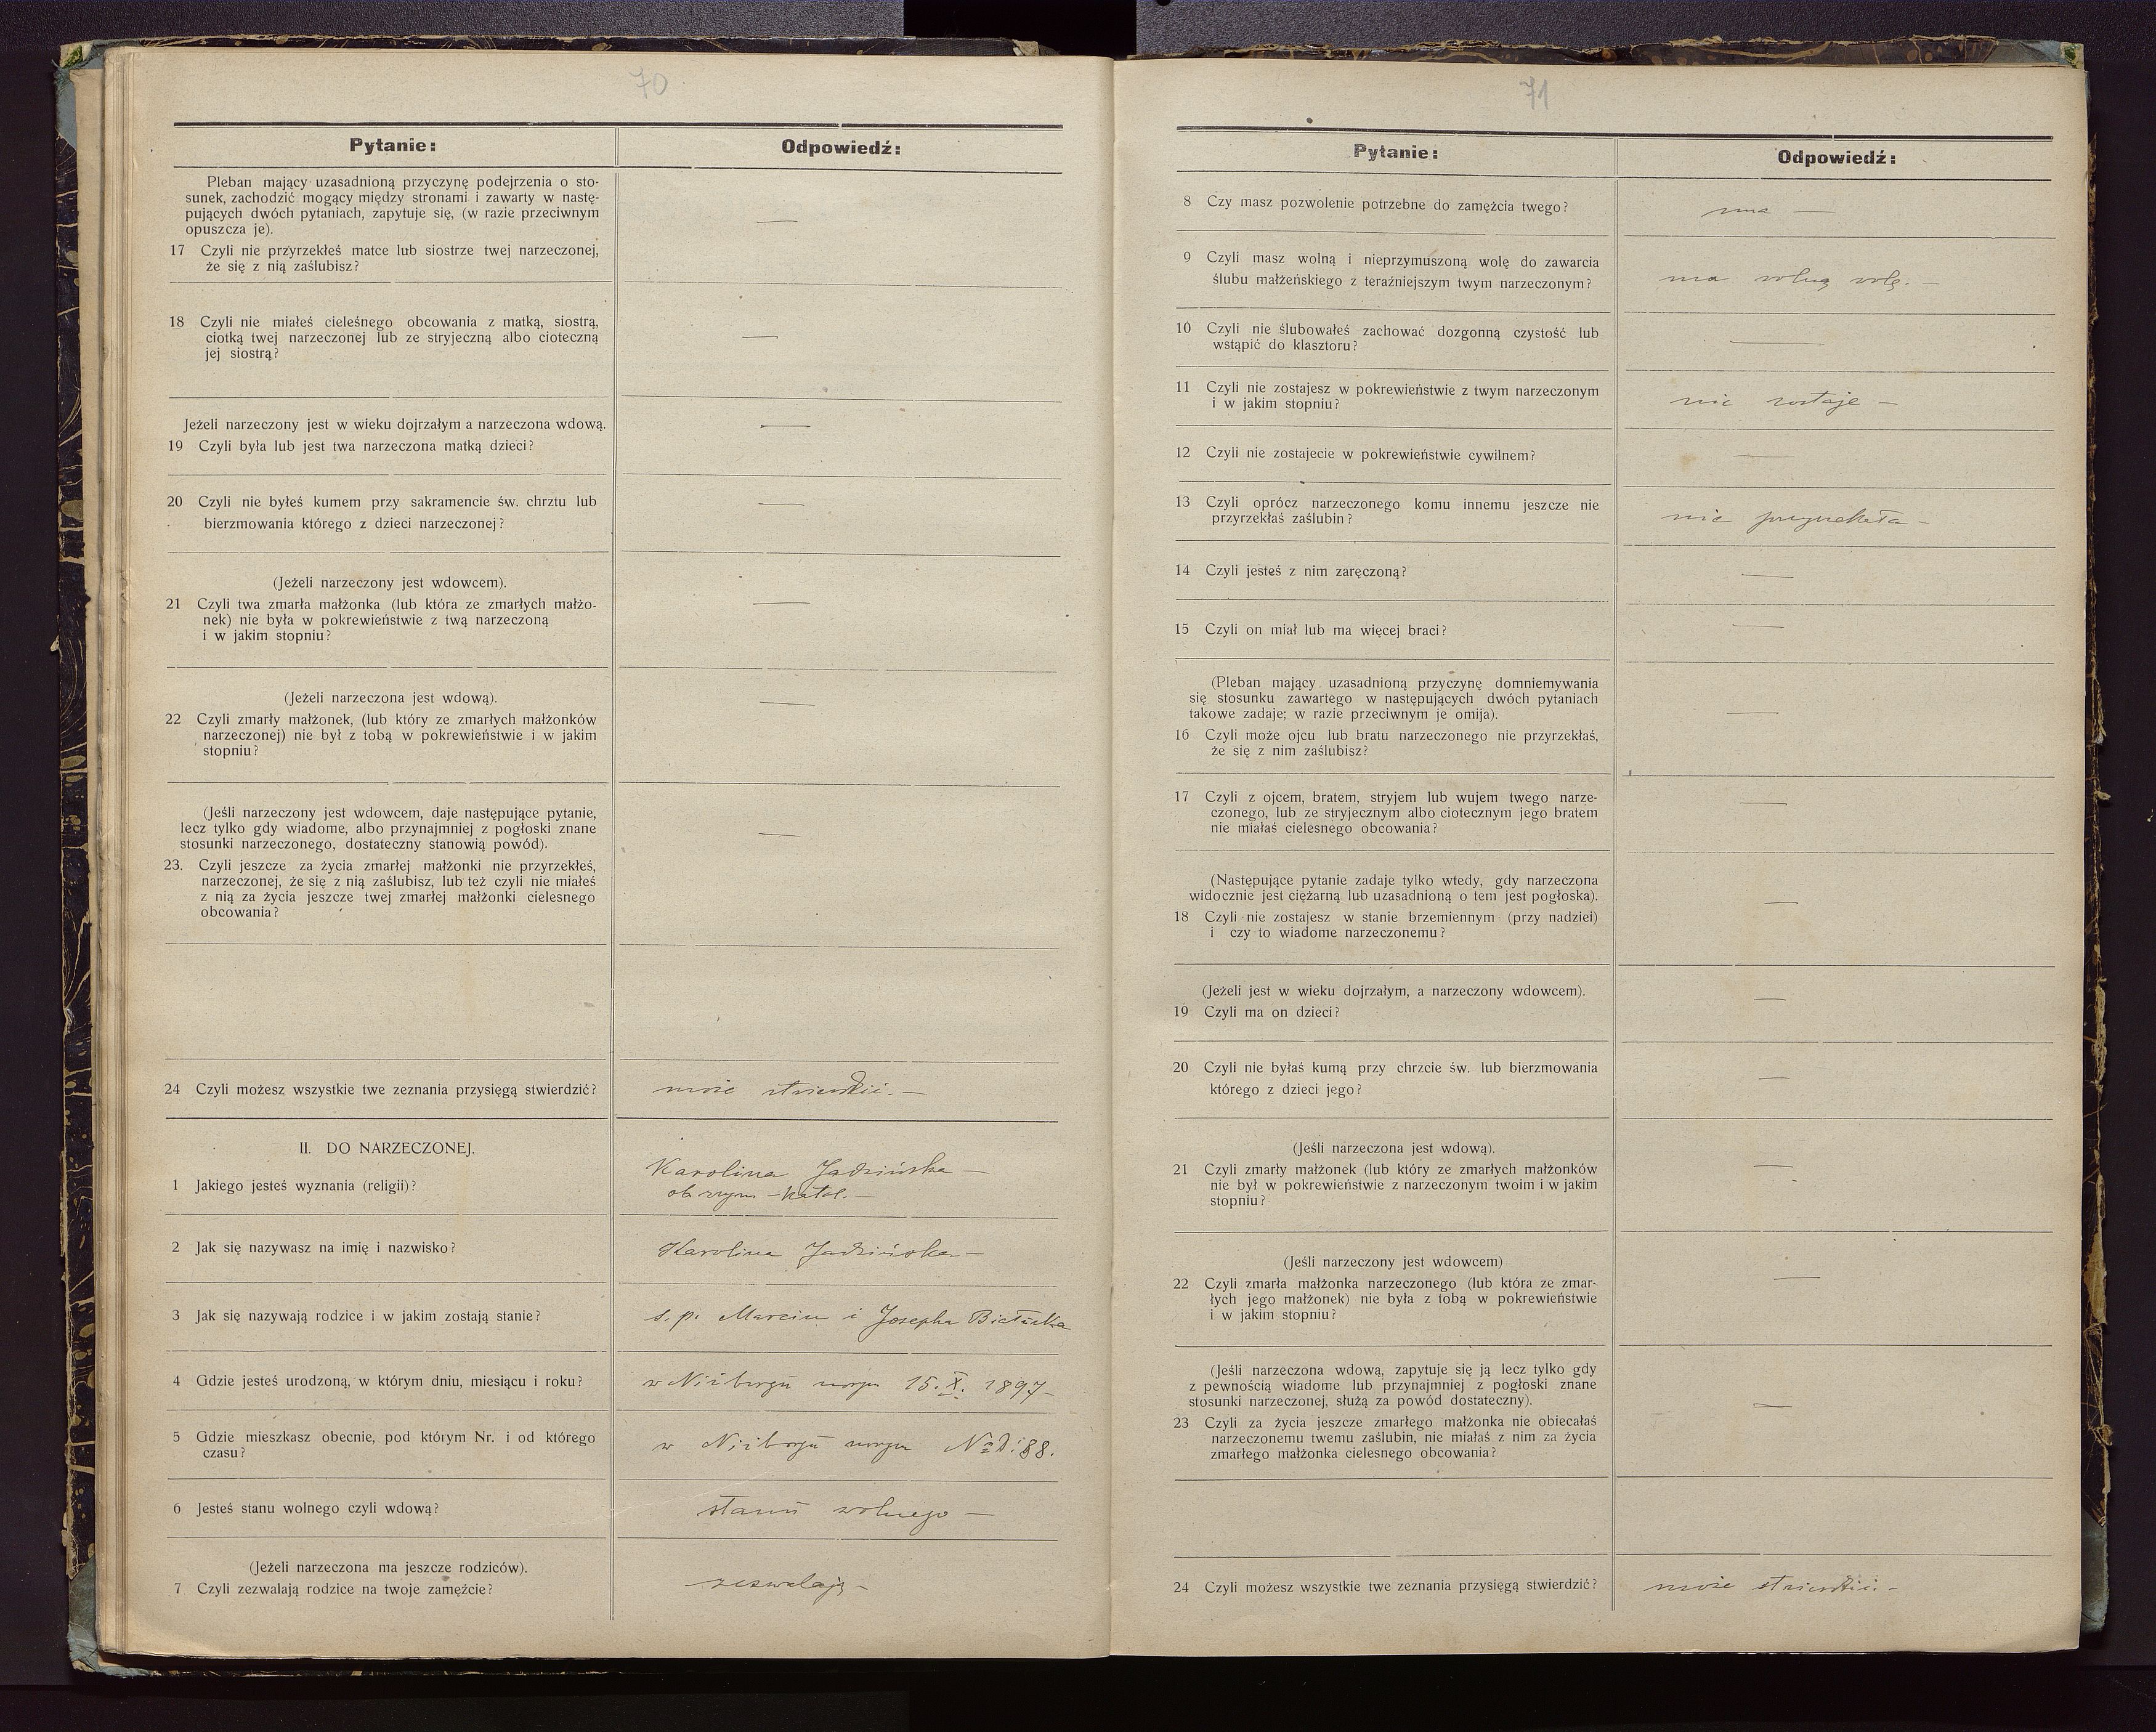 70
Pytanie:
Odpowiedź:
Pleban mający uzasadnioną przyczynę podejrzenia o sto-
sunek, zachodzić mogący między stronami i zawarty w nastę-
pujących dwóch pytaniach, zapytuje się, (w razie przeciwnym
opuszcza je).
—
17 Czyli nie przyrzekłeś matce lub siostrze twej narzeczonej,
że się z nią zaślubisz?
18 Czyli nie miałeś cieleśnego obcowania z matką, siostrą,
ciotką twej narzeczonej lub ze stryjeczną albo cioteczną
jej siostrą?
—
Jeżeli narzeczony jest w wieku dojrzałym a narzeczona wdową.
—
19 Czyli była lub jest twa narzeczona matką dzieci?
20 Czyli nie byłeś kumem przy sakramencie św. chrztu lub
bierzmowania którego z dzieci narzeczonej?
—
(Jeżeli narzeczony jest wdowcem).
21 Czyli twa zmarła małżonka (lub która ze zmarłych małżo-
nek) nie była w pokrewieństwie z twą narzeczoną
i w jakim stopniu?
—
(Jeżeli narzeczona jest wdową).
22 Czyli zmarły małżonek, (lub który ze zmarłych małżonków
narzeczonej) nie był z tobą w pokrewieństwie i w jakim
stopniu?
—
(Jeśli narzeczony jest wdowcem, daje następujące pytanie,
lecz tylko gdy wiadome, albo przynajmniej z pogłoski znane
stosunki narzeczonego, dostateczny stanowią powód).
—
23. Czyli jeszcze za życia zmarłej małżonki nie przyrzekłeś,
narzeczonej, że się z nią zaślubisz, lub też czyli nie miałeś
z nią za życia jeszcze twej zmarłej małżonki cielesnego
obcowania?
24 Czyli możesz wszystkie twe zeznania przysięgą stwierdzić?
może stwierdzić. —
II. DO NARZECZONEJ.
Karolina Jadzińska —
1 Jakiego jesteś wyznania (religii)?
ob rzym - katol. —
2 Jak się nazywasz na imię i nazwisko?
Karolina Jadzińska —
3 Jak się nazywają rodzice i w jakim zostają stanie?
ś. p. Marcin i Josepha
4 Gdzie jesteś urodzoną, w którym dniu, miesiącu i roku?
w 15. X. 1897 —
5 Gdzie mieszkasz obecnie, pod którym Nr. i od którego
czasu?
w 88.
6 Jesteś stanu wolnego czyli wdową?
stanu wolnego —
(Jeżeli narzeczona ma jeszcze rodziców).
7 Czyli zezwalają rodzice na twoje zamęźcie?
zezwalają —
71
Pytanie:
Odpowiedź:
8 Czy masz pozwolenie potrzebne do zamężcia twego?
ma —
9 Czyli masz wolną i nieprzymuszoną wolę do zawarcia
ślubu małżeńskiego z teraźniejszym twym narzeczonym?
ma wolną wolę. —
10 Czyli nie ślubowałeś zachować dozgonną czystość lub
wstąpić do klasztoru?
—
11 Czyli nie zostajesz w pokrewieństwie z twym narzeczonym
i w jakim stopniu?
nie zostaje —
12 Czyli nie zostajecie w pokrewieństwie cywilnem?
—
13 Czyli oprócz narzeczonego komu innemu jeszcze nie
przyrzekłaś zaślubin?
nie przyrzekała —
14 Czyli jesteś z nim zaręczoną?
—
15 Czyli on miał lub ma więcej braci?
—
(Pleban mający uzasadnioną przyczynę domniemywania
się stosunku zawartego w następujących dwóch pytaniach
takowe zadaje; w razie przeciwnym je omija).
—
16 Czyli może ojcu lub bratu narzeczonego nie przyrzekłaś,
że się z nim zaślubisz?
17 Czyli z ojcem, bratem, stryjem lub wujem twego narze-
czonego, lub ze stryjecznym albo ciotecznym jego bratem
nie miałaś cielesnego obcowania?
—
(Następujące pytanie zadaje tylko wtedy, gdy narzeczona
widocznie jest ciężarną lub uzasadnioną o tem jest pogłoska).
—
18 Czyli nie zostajesz w stanie brzemiennym (przy nadziei)
i czy to wiadome narzeczonemu?
(Jeżeli jest w wieku dojrzałym, a narzeczony wdowcem).
—
19 Czyli ma on dzieci?
20 Czyli nie byłaś kumą przy chrzcie św. lub bierzmowania
którego z dzieci jego?
—
(Jeśli narzeczona jest wdową).
21 Czyli zmarły małżonek (lub który ze zmarłych małżonków
nie był w pokrewieństwie z narzeczonym twoim i w jakim
stopniu?
—
(Jeśli narzeczony jest wdowcem)
22 Czyli zmarła małżonka narzeczonego (lub która ze zmar-
łych jego małżonek) nie była z tobą w pokrewieństwie
i w jakim stopniu?
—
(Jeśli narzeczona wdową, zapytuje się ją lecz tylko gdy
z pewnością wiadome lub przynajmniej z pogłoski znane
stosunki narzeczonej, służą za powód dostateczny).
—
23 Czyli za życia jeszcze zmarłego małżonka nie obiecałaś
narzeczonemu twemu zaślubin, nie miałaś z nim za życia
zmarłego małżonka cielesnego obcowania?
24 Czyli możesz wszystkie twe zeznania przysięgą stwierdzić?
może stwierdzić. —